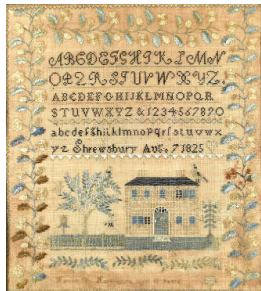 ABCDEFGHIKLMN
OPQRSTUVWXYZ
ABCDEFGHIJKLMNOPQR
STUVWXYZ&1234567890
abcdefghijklmnopqrſstuvwx
yz Shrewsbury Aug. 7 1825